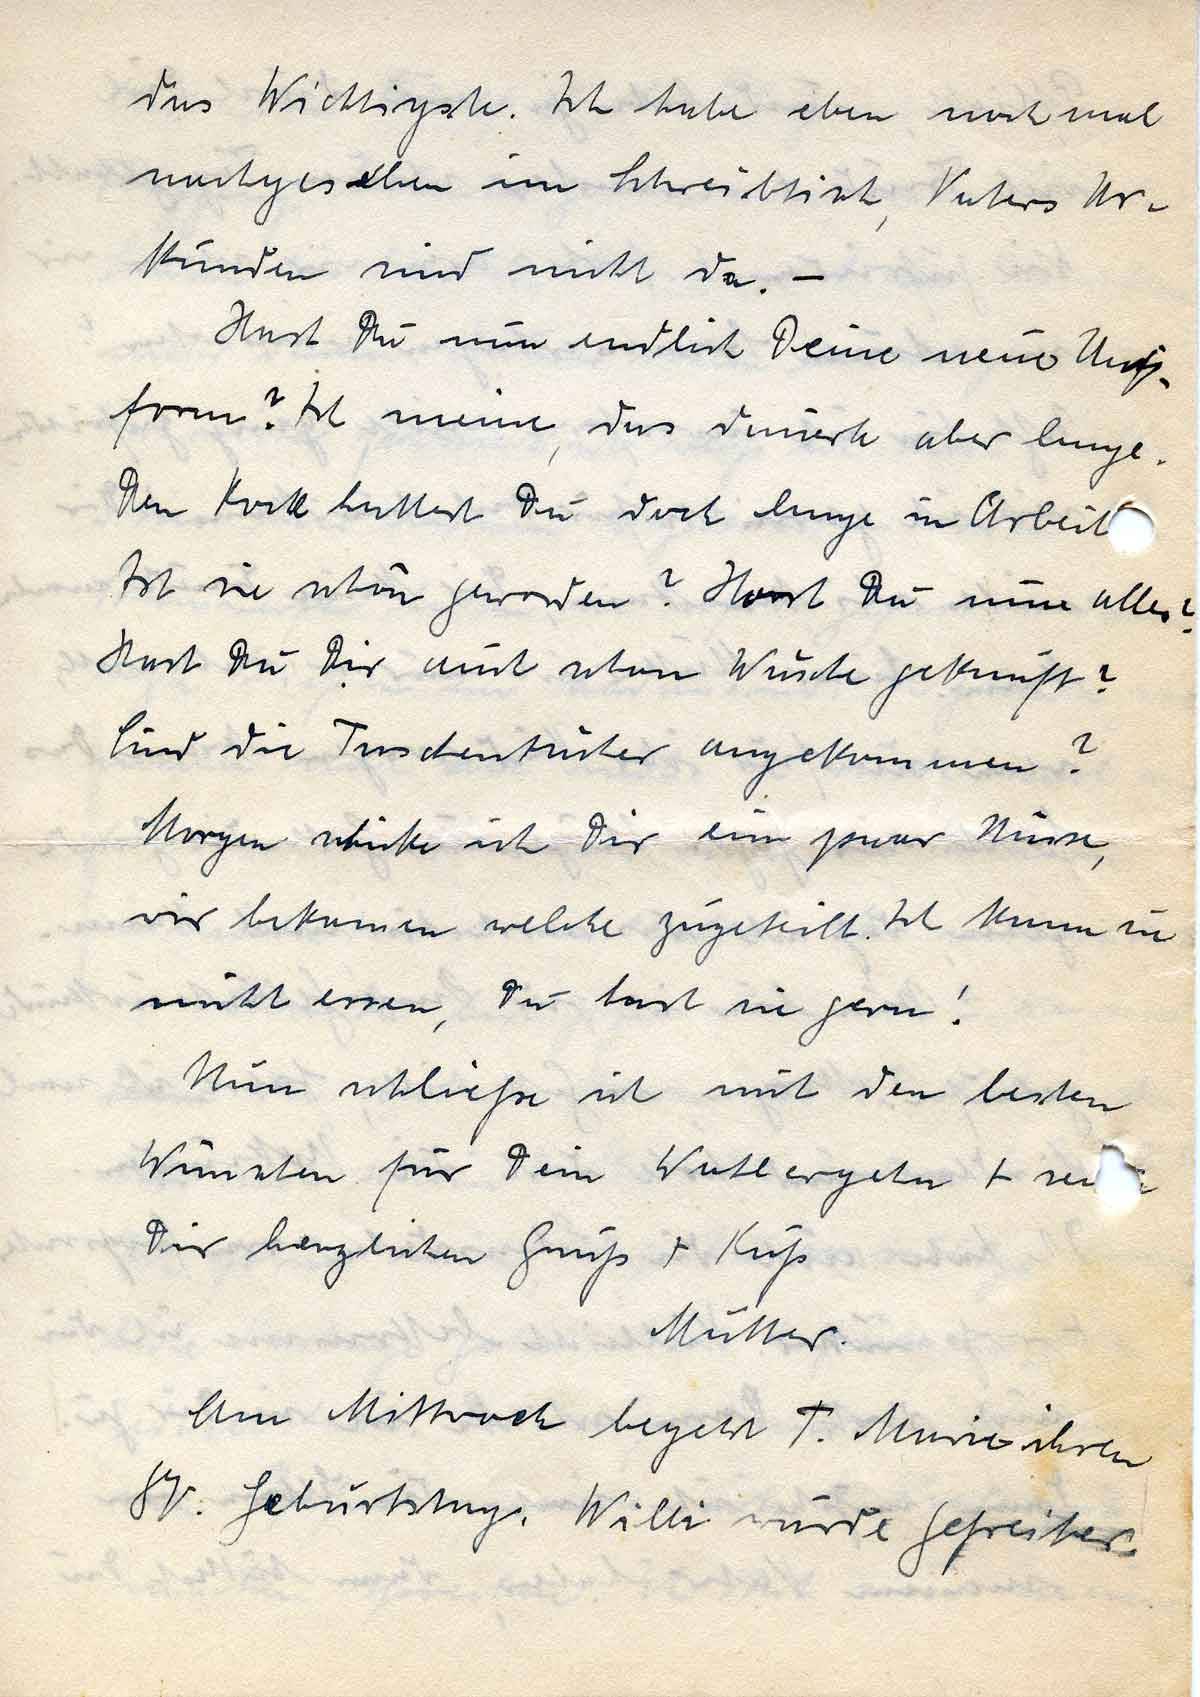 das Wichtigste. Ich habe eben noch mal
nachgesehen im Schreibtisch, Vaters Ur-
kunden sind nicht da. –
Hast Du nun endlich Deine neue Uni-
form? Ich meine, das dauerte aber lange.
Den Rock hattest Du doch lange in Arbeit
Ist sie schön geworden? Hast Du nun alles?
Hast Du Dir auch schon Wäsche gekauft?
Sind die Taschentücher angekommen?
Morgen schicke ich Dir ein paar Nüsse,
wir bekamen welche zugeteilt. Ich kann sie
nicht essen, Du hast sie gern!
Nun schließe ich mit den besten
Wünschen für Dein Wohlergehn +
Dir herzlichen Gruß + Kuß
Mutter.
Am Mittwoch begeht T. Marie ihren
Geburtstag. Willi wurde Gefreiter.